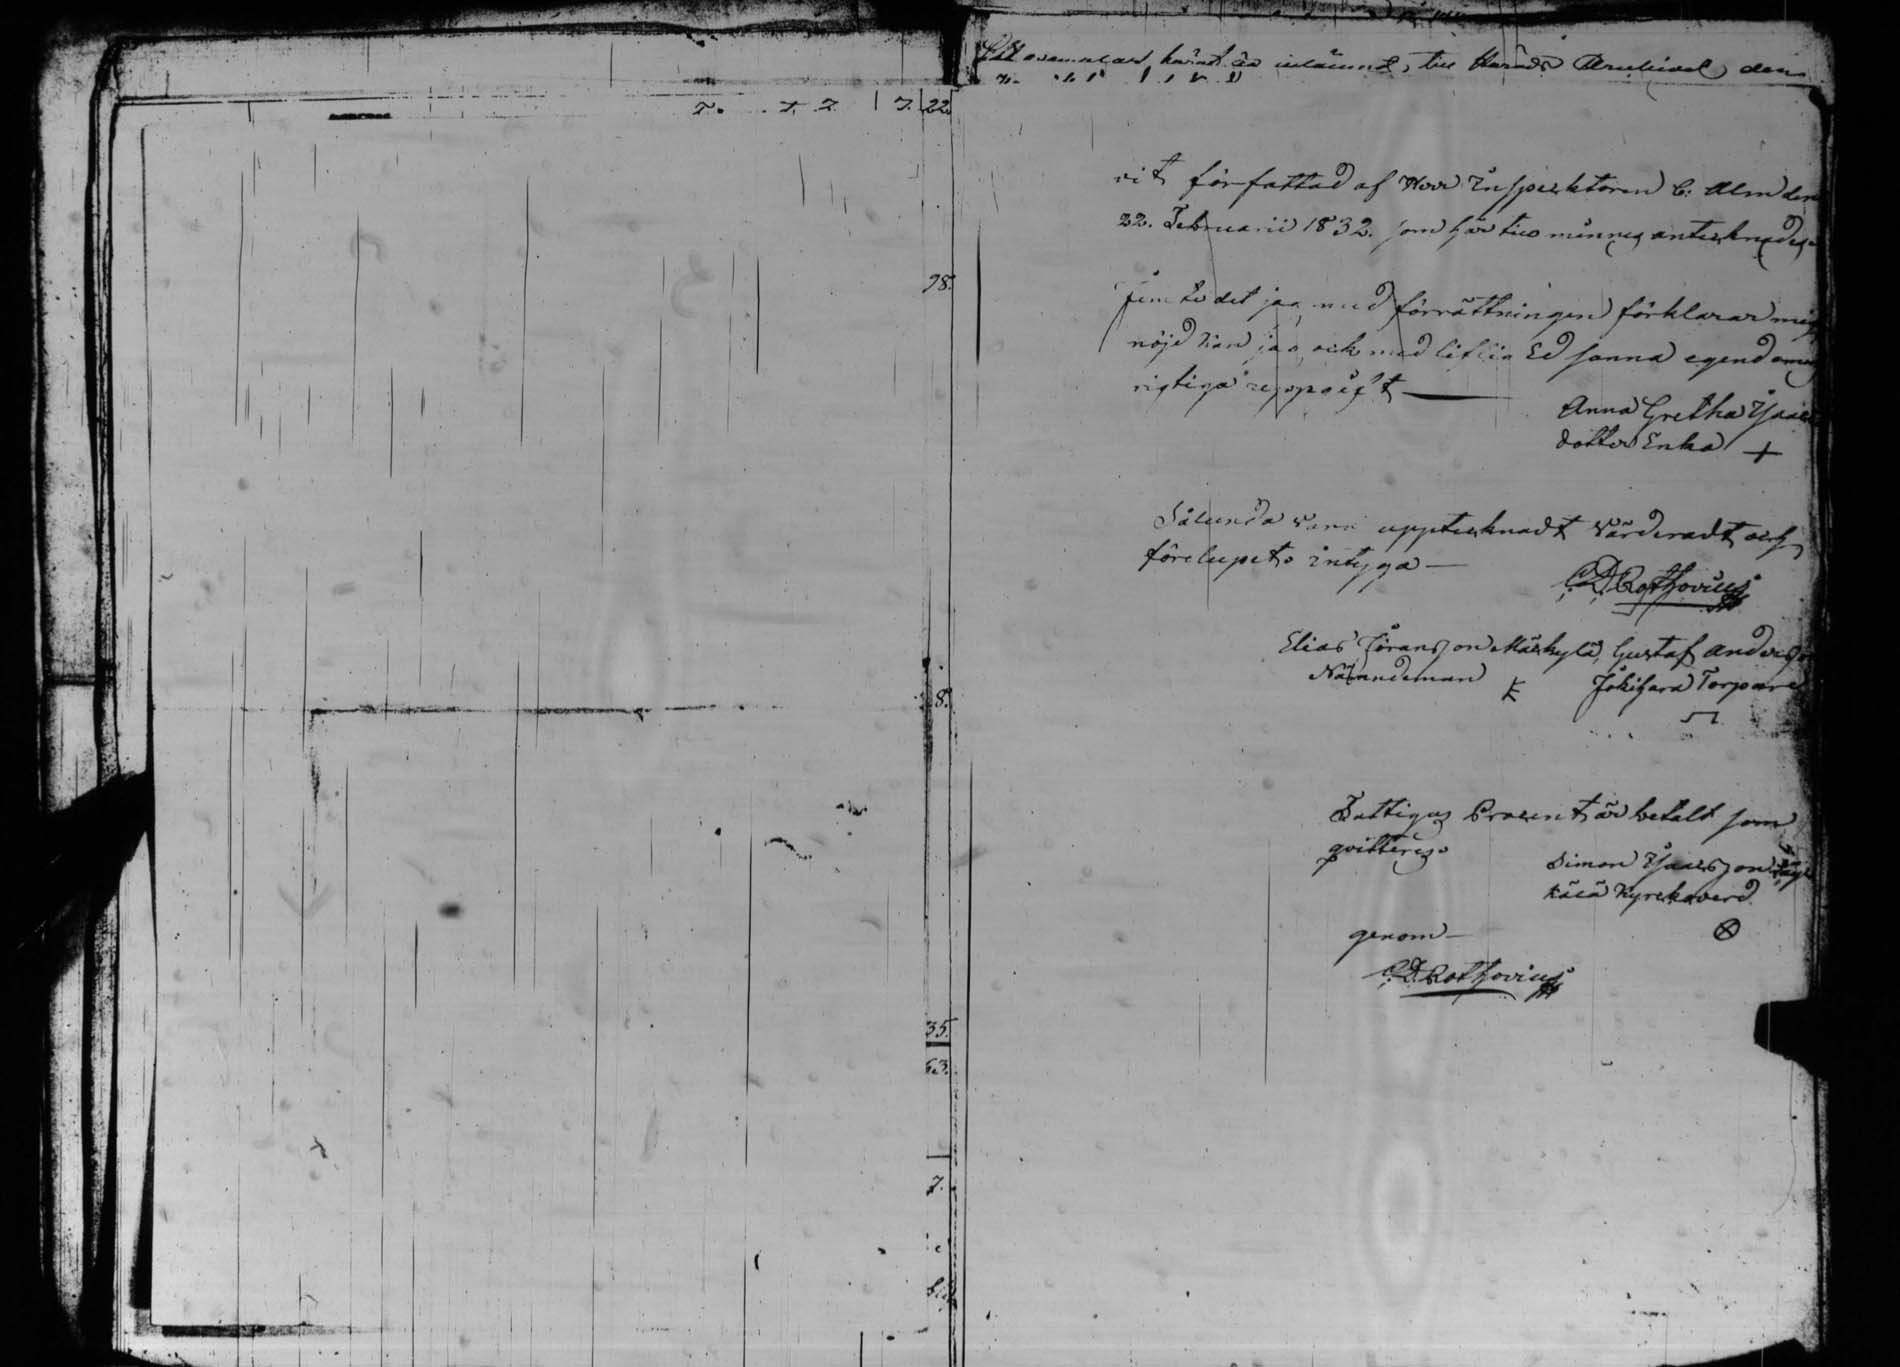 Ett exemplar härat är inlämnt, till Härads Archivet den
22
98.
8.
35.
63.
7.
vit författad af Herr Inspecktoren C: Alm den
22. Februarii 1832. som här till minnes antecknades
Jemte det jag med förrättningen förklarar mig
nöjd kan jag ock med liflig Ed sanna egendomens
rigtiga uppgift —
Anna Gretha Isaacs
dotter Enka +
Sålunda vara uppteknadt Värderadt och
förelupet, intyga —
C. D. Rothovius
Elias Göransson Mäkylä, Gustaf Anders
Nämndeman Jokihara Torpare
Fattigas Procent är betalt som
qvitteras
Simon Isaacsson
källä Kyrckoverd.
genom —
C. D. Rothovius